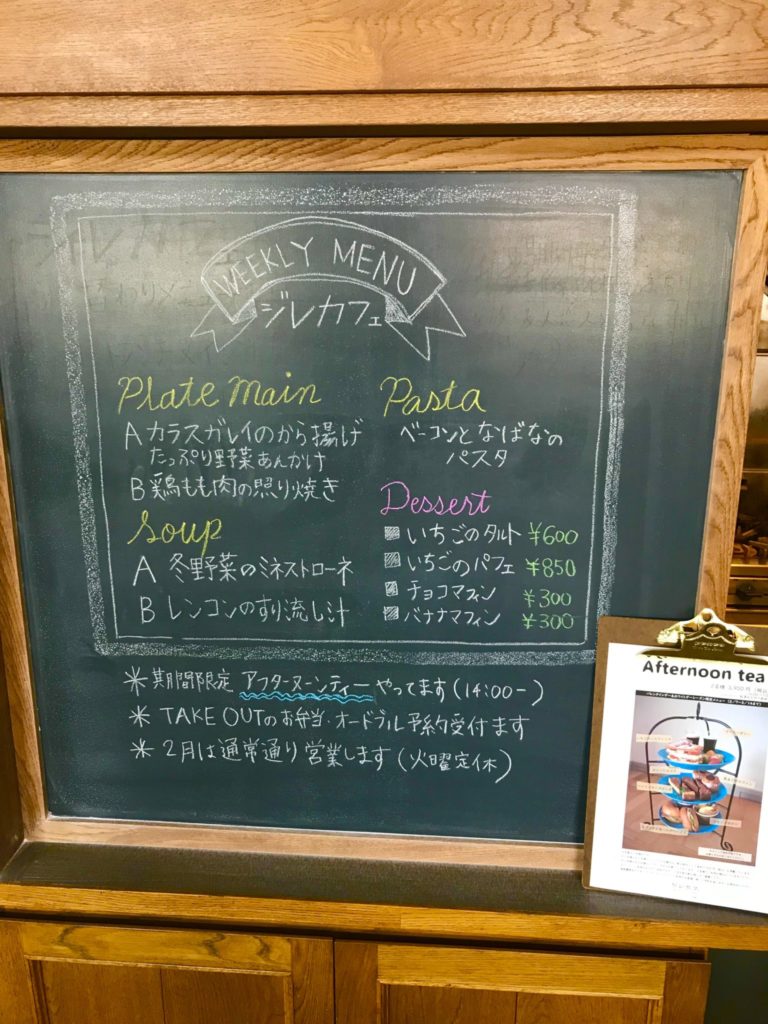 WEEKLY MENU
ジレカフェ
Plate Main
A カラスガレイのから揚げ
たっぷり野菜あんかけ
B 鶏もも肉の照り焼き
Soup
A 冬野菜のミネストローネ
B レンコンのすり流し汁
Pasta
ベーコンとなばなの
パスタ
Dessert
いちごのタルト ¥600
いちごのパフェ ¥850
チョコマフィン ¥300
バナナマフィン ¥300
＊期間限定 アフターヌーンティー やってます(14:00-)
＊TAKE OUTのお弁当・オードブル予約受付ます
＊2月は通常通り営業します(火曜定休)
Afternoon tea